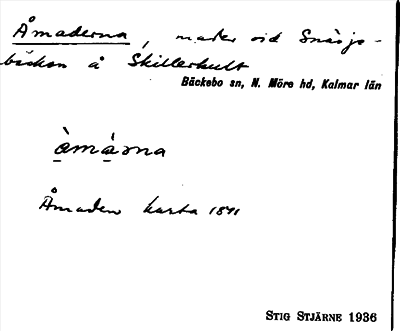 Åmaderna, mader vid Snäsjö-
bäcken å Skillerhult
Bäckebo sn, N. Möre hd, Kalmar län
àmàrna
Åmaden karta 1841
STIG STJÄRNE 1936